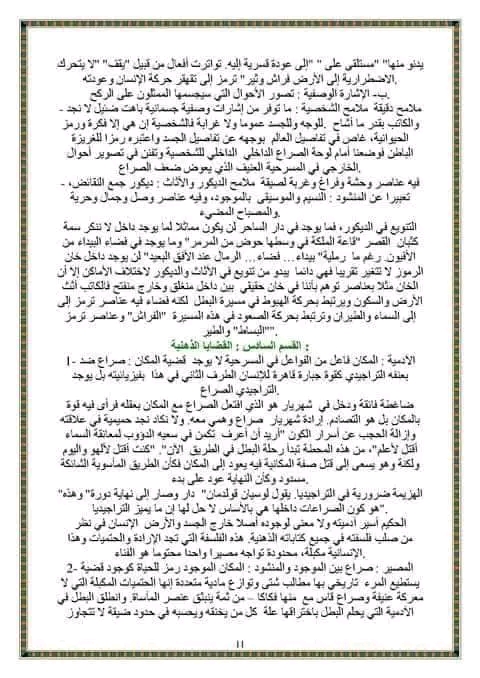 يدنو منها" "مستلقى على " "إلى عودة قسرية إليه. تواترت أفعال من قبيل "يقف" "لا يتحرك
.الاضطرارية إلى الأرض فراش وثير" ترمز إلى تقهقر حركة الإنسان وعودته
ب- الإشارة الوصفية : تصور الأحوال التي سيجسمها الممثلون على الركح.
ملامح دقيقة ملامح الشخصية : ما توفر من إشارات وصفية جسمانية باهت ضئيل لا نجد -
والكاتب بقدر ما أشاح .للوجه وللجسد عموما ولا غرابة فالشخصية إن هي إلا فكرة ورمز
الحيوانية، غاص في تفاصيل العالم بوجهه عن تفاصيل الجسد واعتبره رمزا للغريزة
الباطن فوضعنا أمام لوحة الصراع الداخلي الداخلي للشخصية وتفنن في تصوير أحوال
.الخارجي في المسرحية العنيف الذي يعوض ضعف الصراع
فيه عناصر وحشة وفراغ وغربة لصيقة ملامح الديكور والأثاث : ديكور جمع النقائض، -
تعبيرا عن المنشود : النسيم والموسيقى بالموجود، وفيه عناصر وصل وجمال وحرية
.والمصباح المضيء
التنويع في الديكور، فما يوجد في دار الساحر لن يكون مماثلا لما يوجد داخل لا ننكر سمة
كثبان القصر "قاعة الملكة في وسطها حوض من المرمر" وما يوجد في فضاء البيداء من
الأفيون. رغم ما رملية" بيداء... فضاء... الرمال عند الأفق البعيد" لن يوجد داخل خان
الرموز لا تتغير تقريبا فهي دائما يبدو من تنويع في الأثاث والديكور لاختلاف الأماكن إلا أن
الخان مثلا بعناصر توهم بأننا في خان حقيقي بين داخل منغلق وخارج منفتح فالكاتب أثث
الأرض والسكون ويرتبط بحركة الهبوط في مسيرة البطل لكنه فضاء فيه عناصر ترمز إلى
إلى السماء والطيران وترتبط بحركة الصعود في هذه المسيرة "الفراش" وعناصر ترمز
."البساط" والطير"
: القسم السادس : القضايا الذهنية
الآدمية : المكان فاعل من الفواعل في المسرحية لا يوجد قضية المكان : صراع ضد -1
بعنفه التراجيدي كقوة جبارة قاهرة للإنسان الطرف الثاني في هذا بفيزيائيته بل يوجد
.التراجيدي الصراع
ضاغطة فانقة ودخل في شهريار هو الذي افتعل الصراع مع المكان بعقله فرأى فيه قوة
بالمكان بل هو التصادم. إرادة شهريار صراع وهمي معه. ولا نكاد نجد حميمية في علاقته
وإزالة الحجب عن أسرار الكون "أريد أن أعرف تكمن في سعيه الدؤوب لمعانقة السماء
أقتل لأعلم"، من هذه المحطة تبدأ رحلة البطل في الطريق الآن". "كنت أقتل لألهو واليوم
ولكنة وهو يسعى إلى قتل صفة المكانية فيه يعود إلى المكان فكأن الطريق المأسوية الشائكة
.مسدود وكأن النهاية عود على بدء
الهزيمة ضرورية في التراجيديا. يقول لوسيان قولدمان" دار وصار إلى نهاية دورة" وهذه"
."هو كون الصراعات داخلها هي بالأساس لا حل لها إن ما يميز التراجيديا
الحكيم أسير آدميته ولا معنى لوجوده أصلا خارج الجسد والأرض الإنسان في نظر
من صلب فلسفته في جميع كتاباته الذهنية. هذه الفلسفة التي تجد الإرادة والحتميات وهذا
.الإنسانية مكبلة، محدودة تواجه مصيرا واحدا محتوما هو الفناء
المصير : صراع بين الموجود والمنشود : المكان الموجود رمز للحياة كوجود قضية -2
يستطيع المرء تاريخي بها مطالب شتى وتوازع مادية متعددة إنها الحتميات المكبلة التي لا
معركة عنيفة وصراع قاس مع منها فكاكا – من ثمة ينبثق عنصر المأساة. وانطلق البطل في
الآدمية التي يحلم البطل باختراقها علة كل من يخنقه ويحسبه في حدود ضيقة لا تتجاوز
11